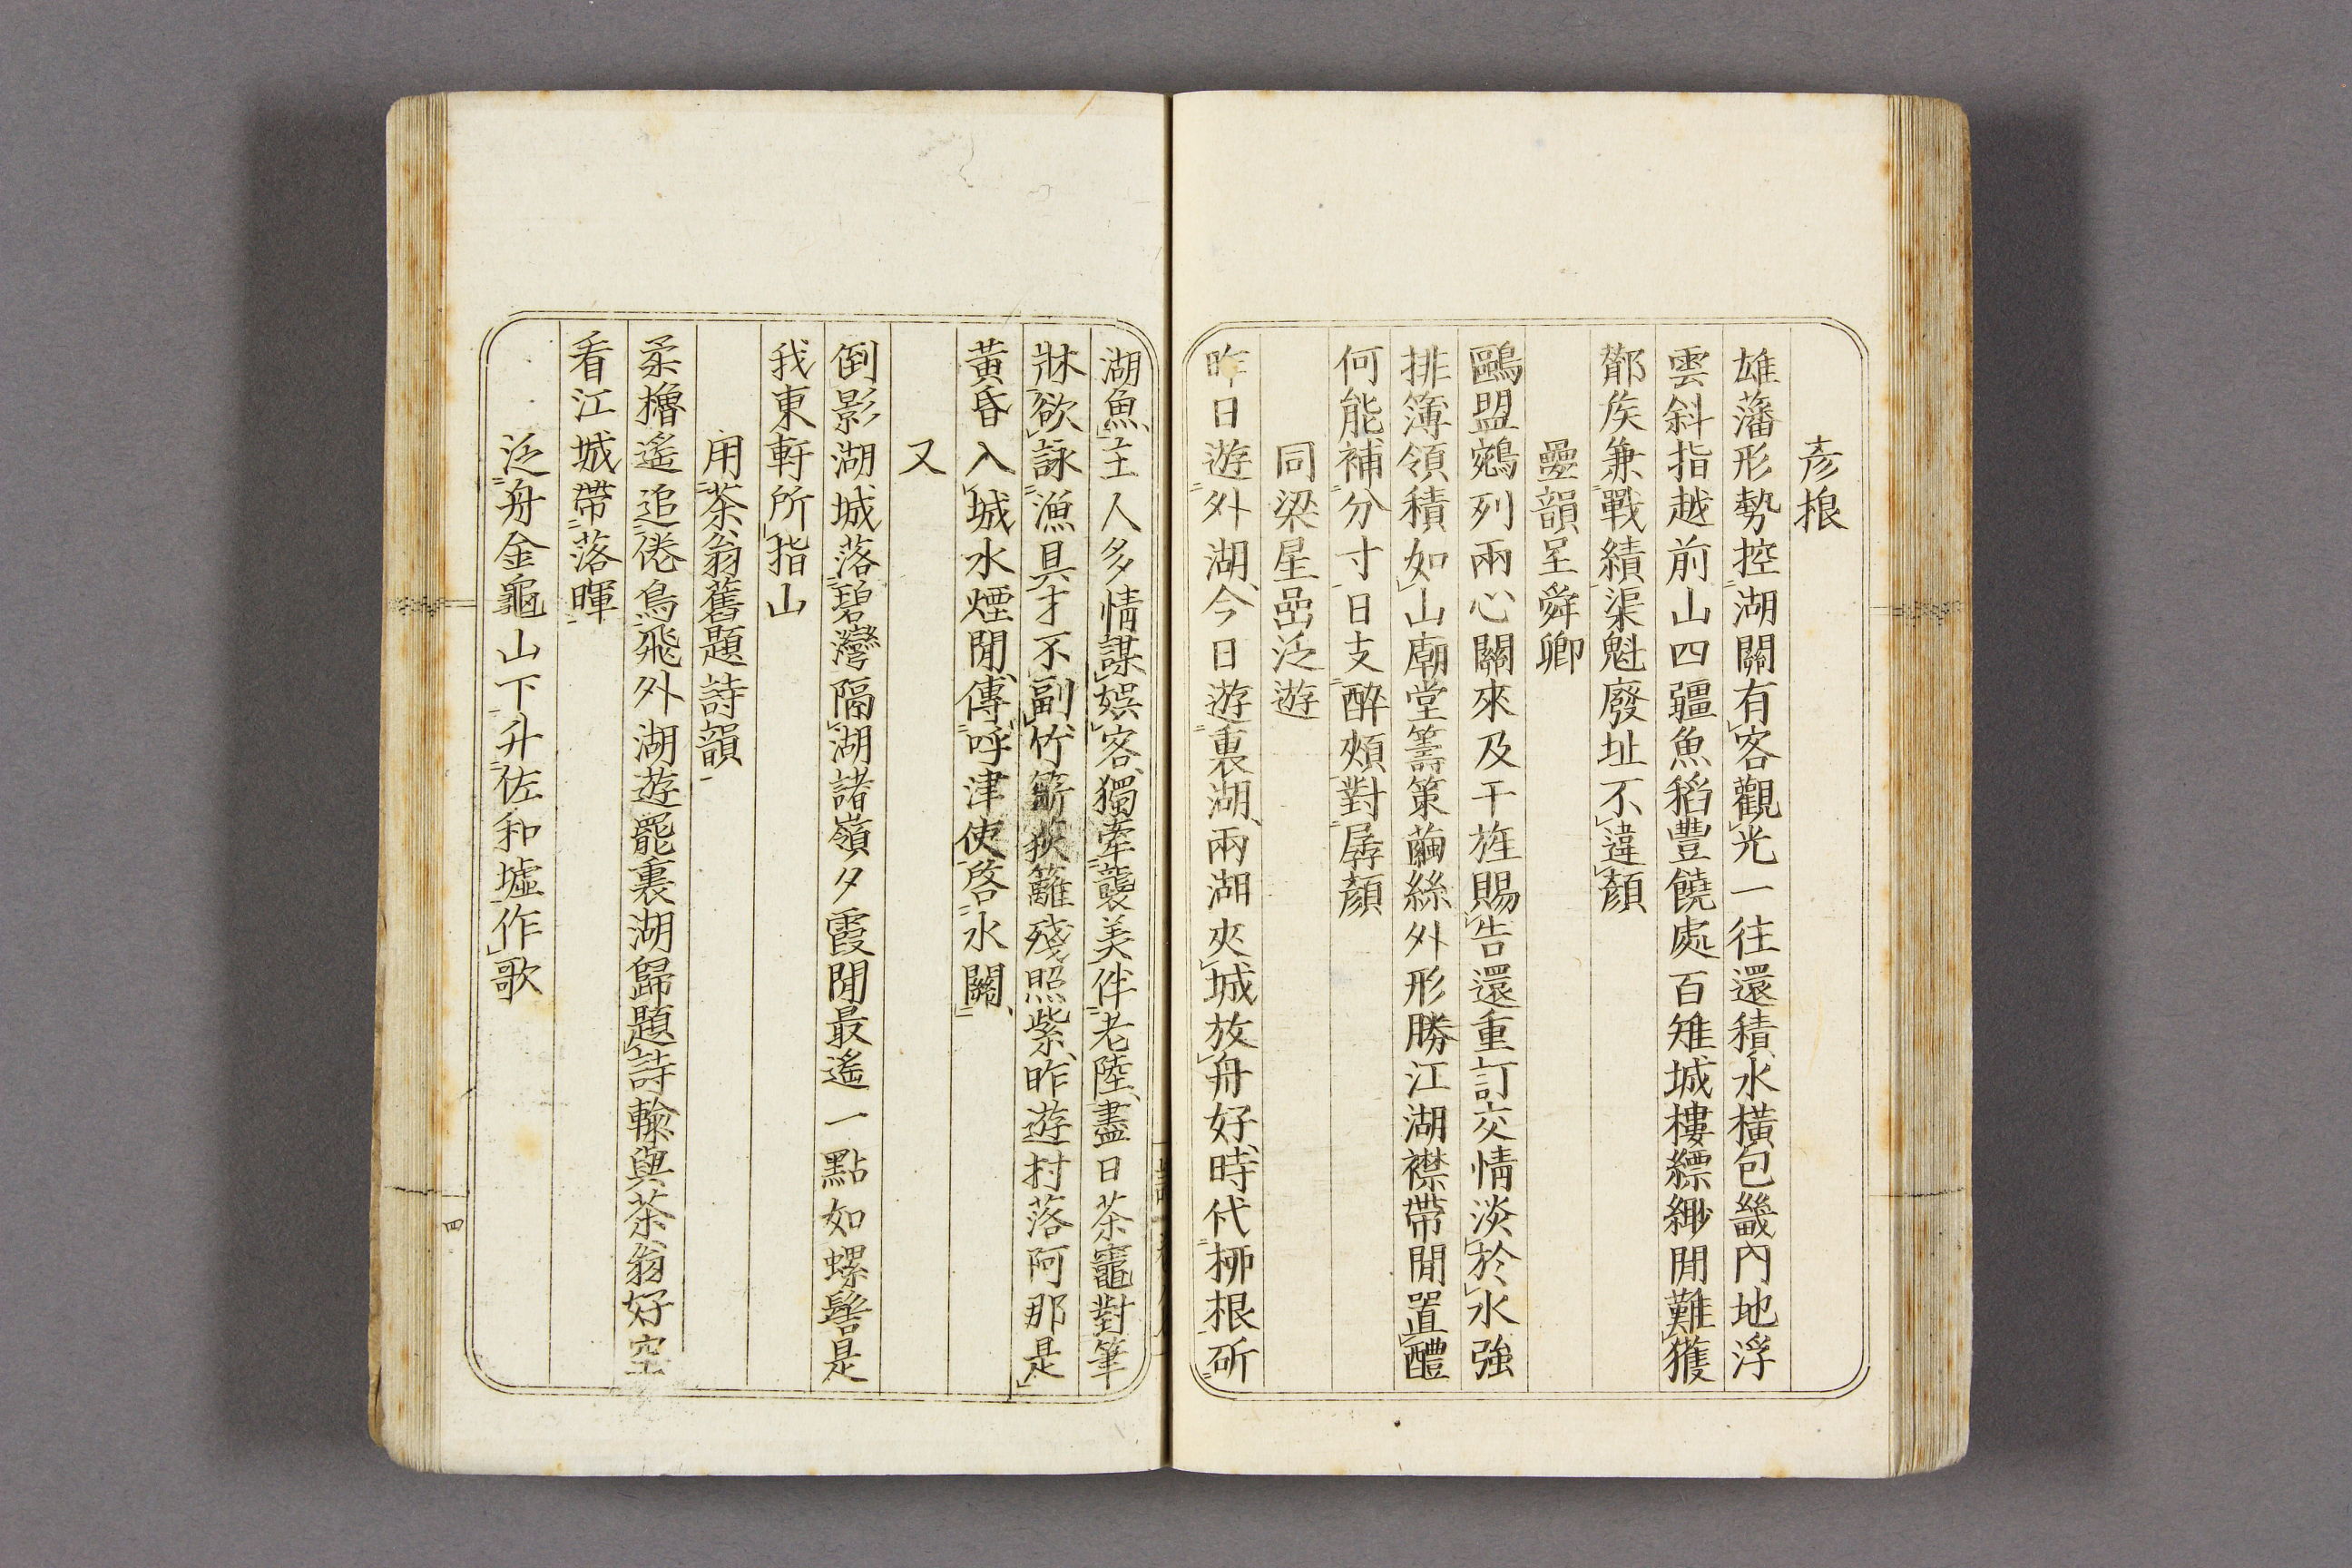 彥根
雄藩形勢控湖關有客觀光一往還積水橫包畿內地浮
雲斜指越前山四疆魚稻豐饒處百雉城樓縹緲閒難獲
鄼矦兼戰績渠魁廢址不違顏
疊韻呈舜卿
鷗盟鵷列兩心關來及干旌賜告還重訂交情淡於水強
排簿領積如山廟堂籌策繭絲外形勝江湖襟帶閒置醴
何能補分寸日支醉頰對孱顏
同梁星嵒泛遊
昨日遊外湖今日遊裏湖兩湖夾城放舟好時代柳根斫
湖魚主人多情謀娛客獨牽襲美伴老陸盡日茶竈對筆
牀欲詠漁具才不副竹籪荻籬殘照紫昨遊村落阿那是
黃昏入城水煙閒傳呼津使啓水關
又
倒影湖城落碧灣隔湖諸嶺夕霞閒最遙一點如螺髻是
我東軒所指山
用茶翁舊題詩韻
柔櫓遙追倦鳥飛外湖遊罷裏湖歸題詩輸與茶翁好空
看江城帶落暉
泛舟金龜山下升佐和墟作歌
四